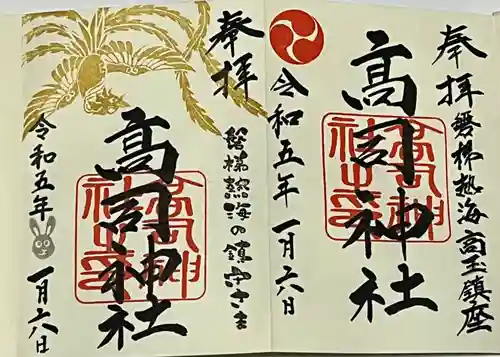 奉拝
磐梯熱海 高玉鎮座
高司神社
令和五年 一月六日
奉拝
磐梯熱海の鎮守さま
高司神社
令和五年 一月六日